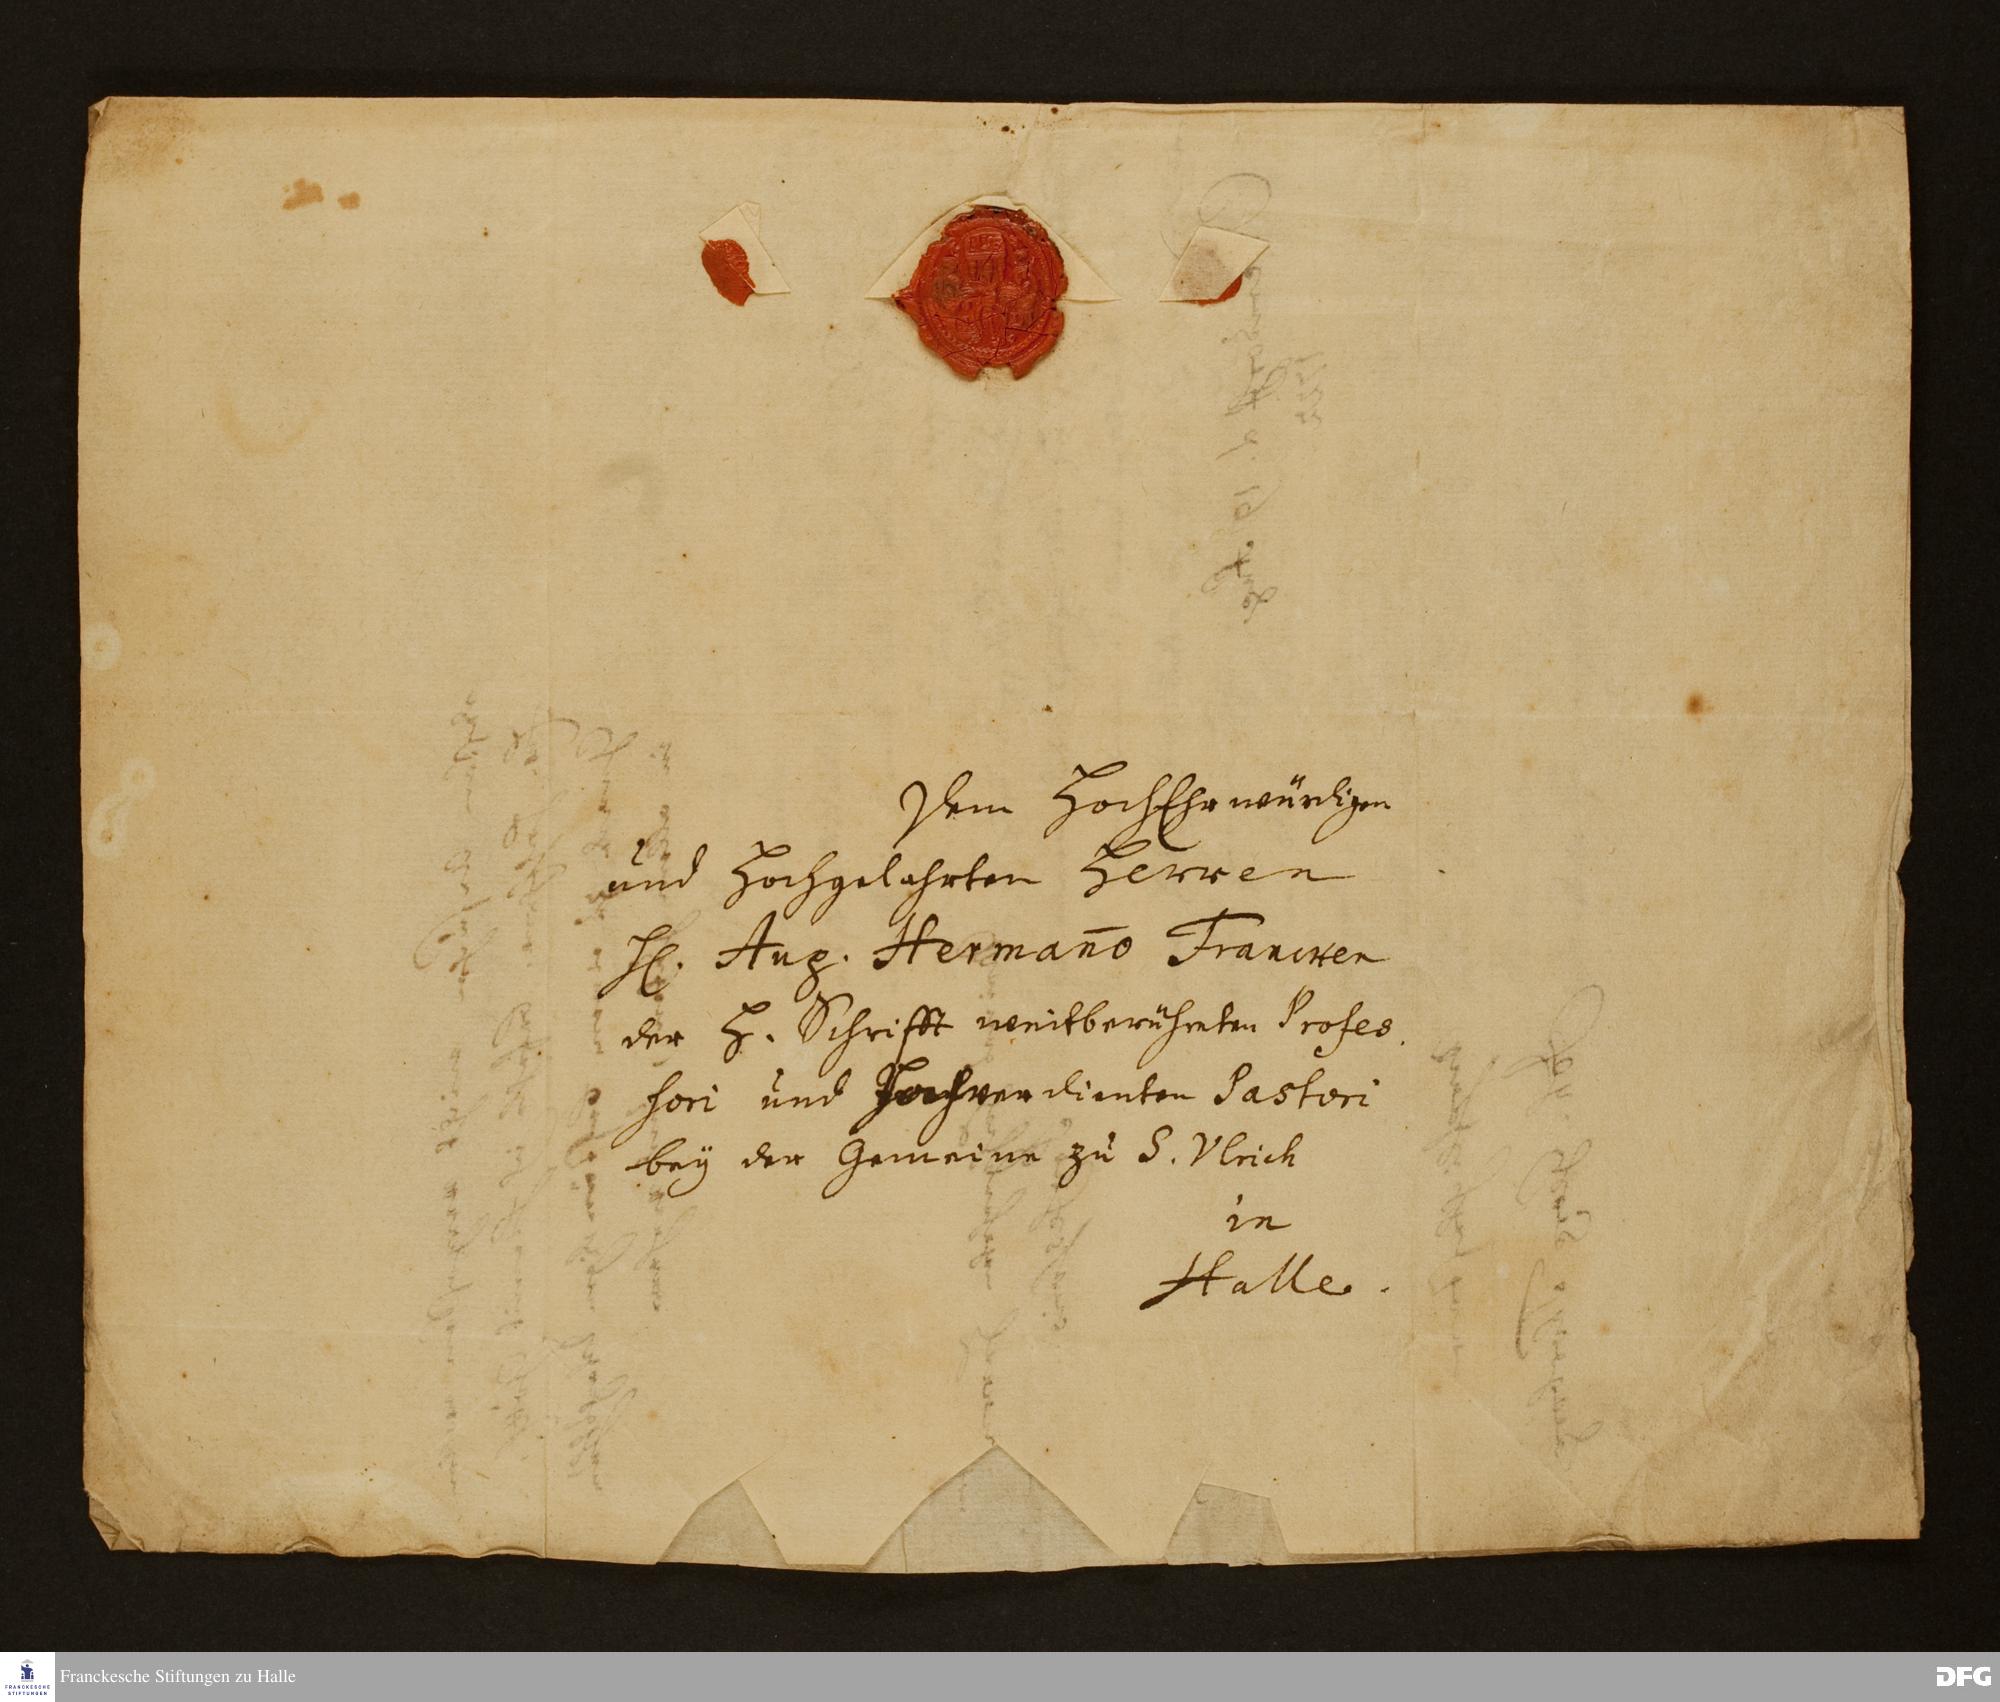 Dem HochEhrwürdigen
und Hochgelahrten Herren
H. Aug. Herman̄o Francken
der H. Schrifft weitberühmten Profes
sori und Hochverdienten Pastori
bey der Gemeine zu S. Vlrich
in
Halle.
FRANCKESCHE
STIFTUNGEN
Franckesche Stiftungen zu Halle
DFG